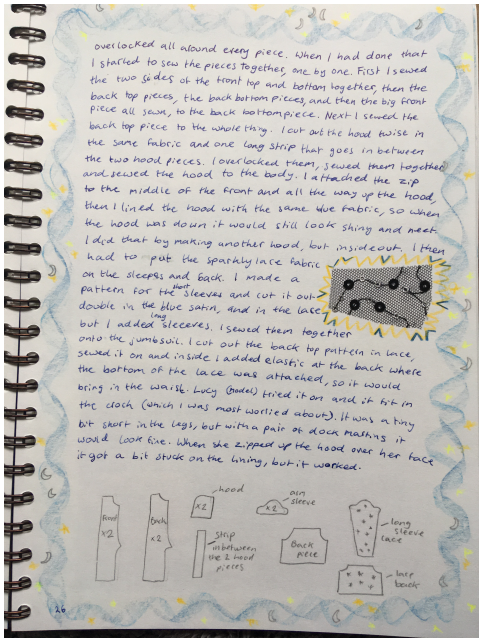 overlocked all around every piece. When I had done that
I started to sew the pieces together, one by one. First I sewed
the two sides of the front top and bottom together, then the
back top pieces, the back bottom pieces, and then the big front
piece all sewn, to the back bottom piece. Next I sewed the
back top piece to the whole thing. I cut out the hood twise in
the same fabric and one long strip that goes in between
the two hood pieces. I overlocked them, sewed them together
and sewed the hood to the body. I attached the zip
to the middle of the front and all the way up the hood,
then I lined the hood with the same blue fabric, so when
the hood was down it would still look shing and neet.
I did that by making another hood, but insideout. I then
had to put the sparkly lace fabric
on the sleeps and back. I made a
pattern for the short sleeves and cut it out
double in the blue satin, and in the lace
but I added long sleeves. I sewed them together
onto the jumbsuit. I cut out the back top pattern in lace,
sewed it on and inside I added elastic at the back where
the bottom of the lace was attached, so it would
bring in the waist. Lucy (model) tried it on and it fit in
the croch (which I was most worlied about). It was a tiny
bit short in the legs, but with a pair of dock masting it
would look fine. When she zipped up the hood over her face
it got a bit stuck on the lining, but it worked.
Front
x2
Back
x2
hood
x2
strip
inbetween
the 2 hood
pieces
arm
sleeve
x2
Back
piece
long
sleeve
lace
lace
back
26